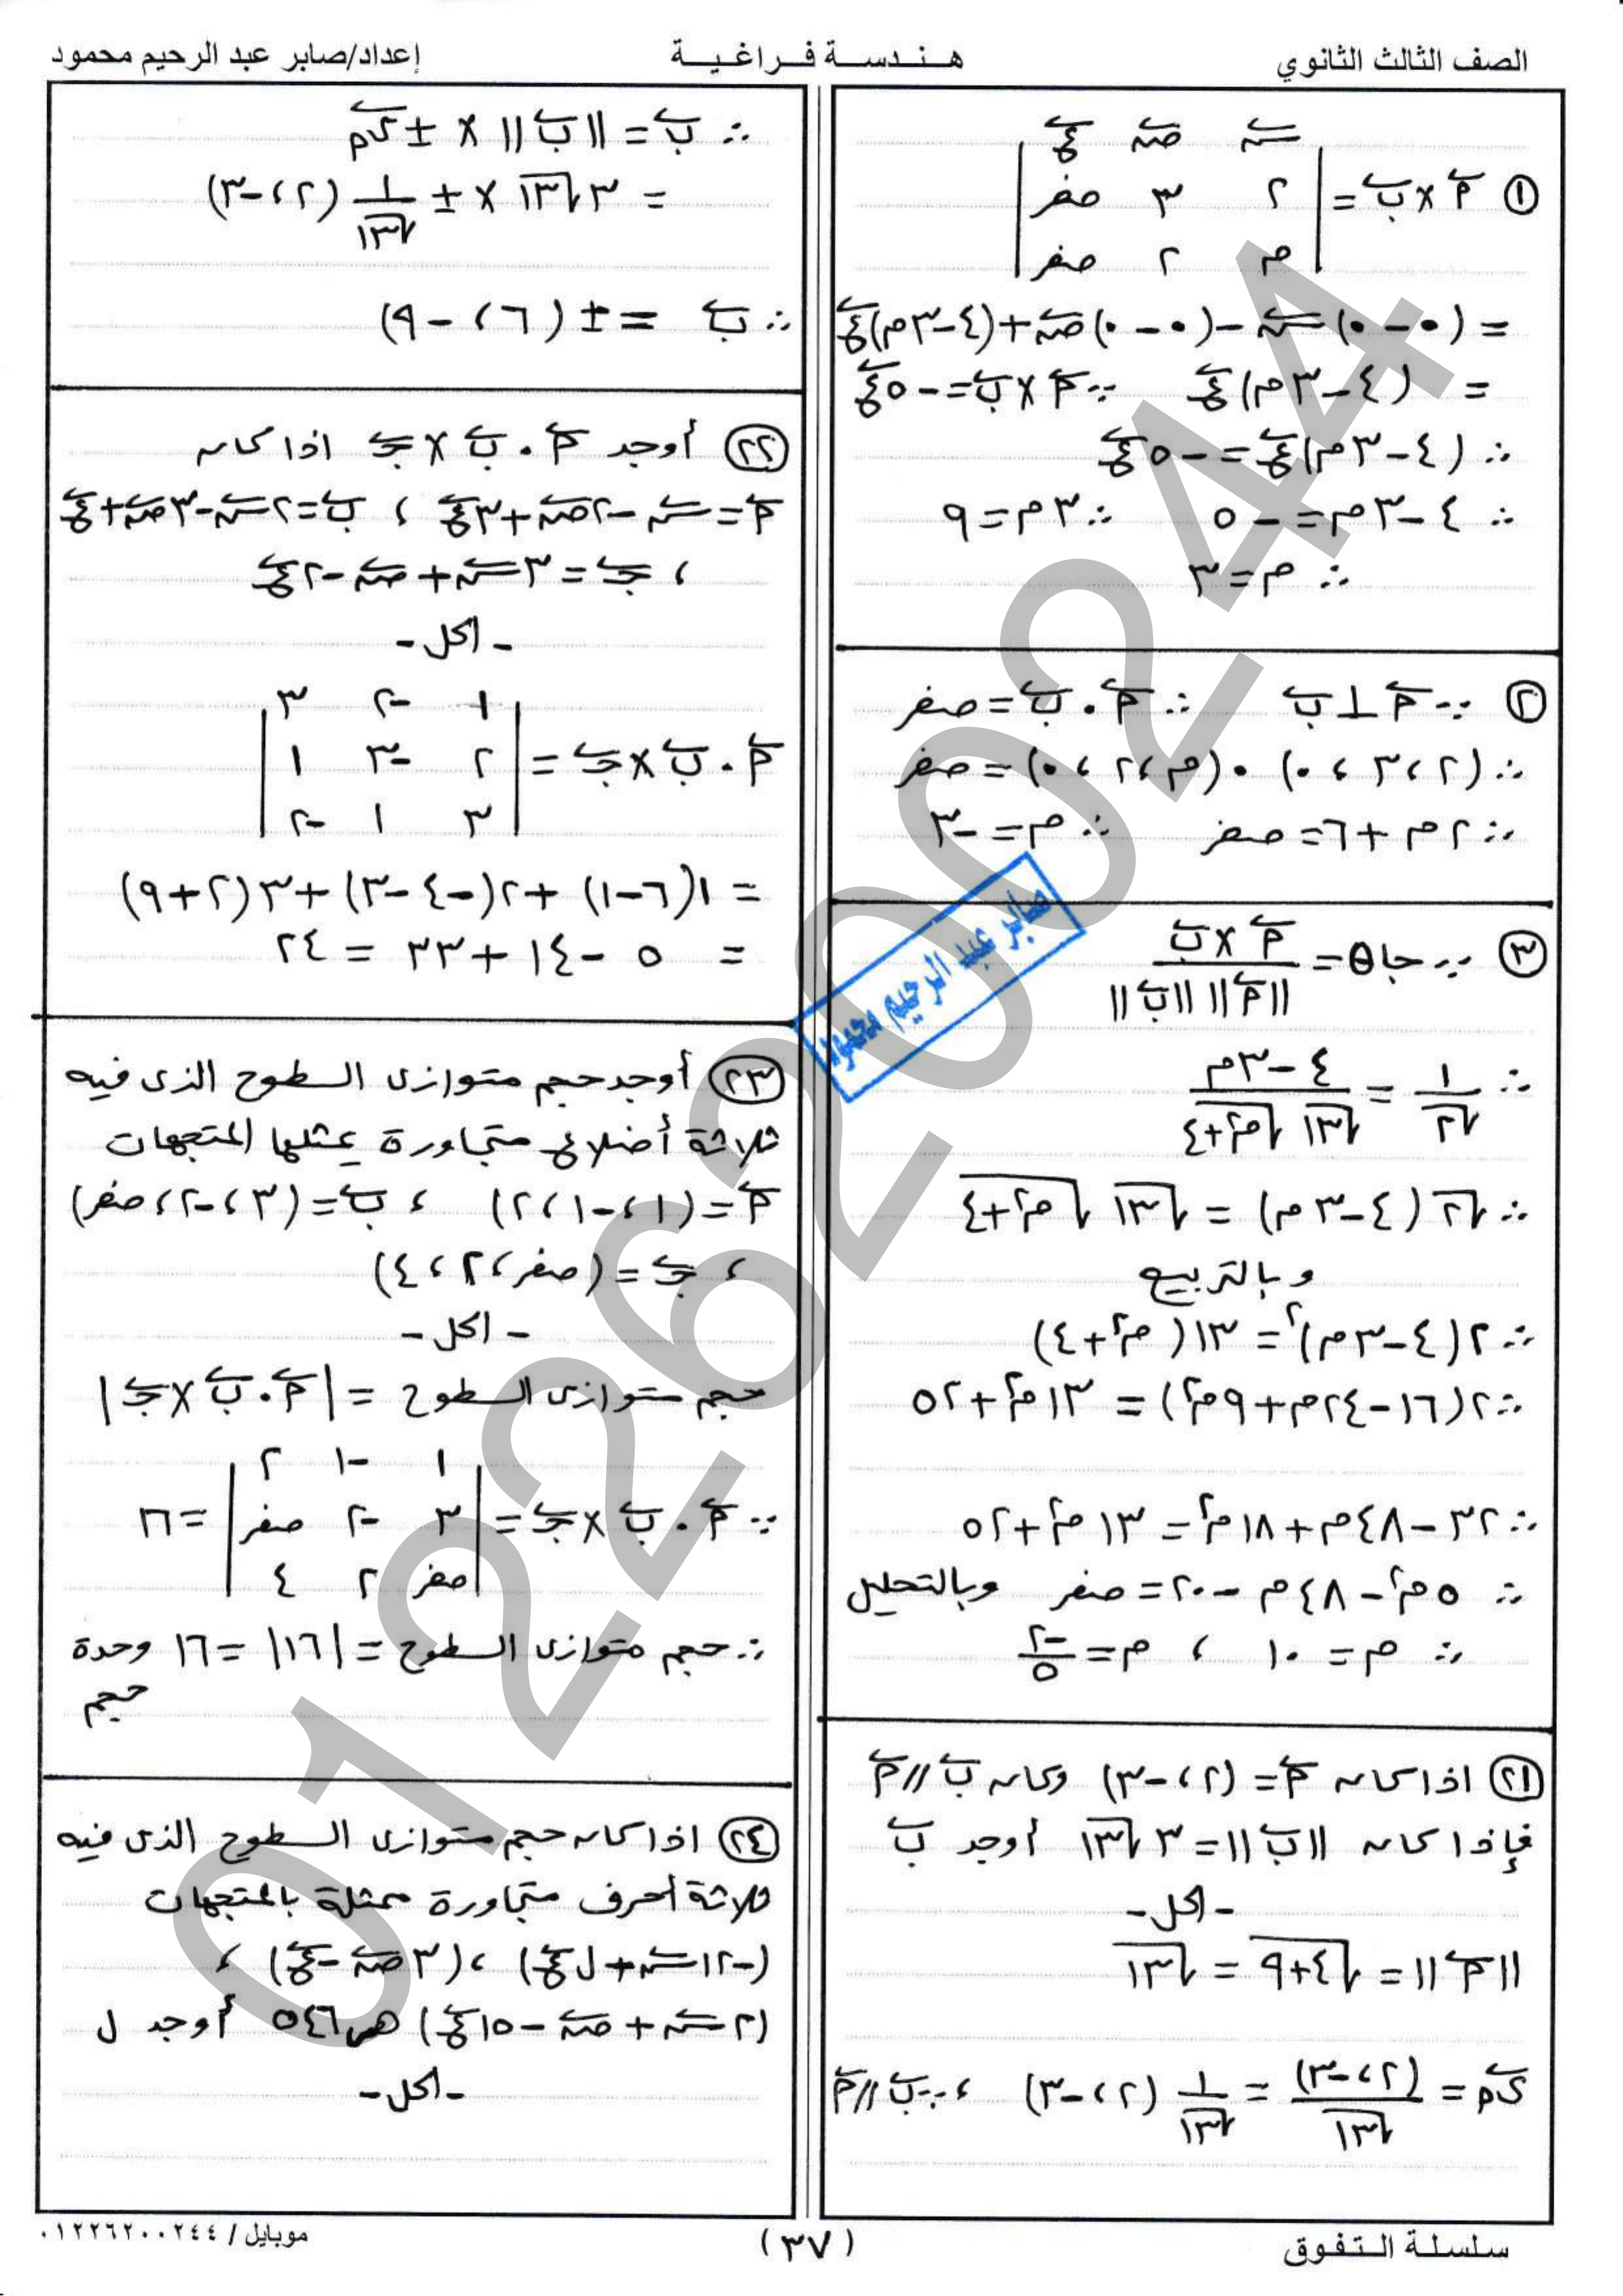 الصف الثالث الثانوي
هندسة فراغية
إعداد/صابر عبد الرحيم محمود
سَ صَ عَ
① أ × ب = | ٢ ٣ صفر |
| م ٢ صفر |
= (٠-٠)س - (٠-٠)ص + (٤-٣م)ع
= (٤-٣م)ع ∵ أ×ب = -٥ع
∴ (٤-٣م)ع = -٥ع
∴ ٤-٣م = -٥ ∴ ٣م = ٩
∴ م = ٣
② ∵ أ ⊥ ب ∴ أ . ب = صفر
∴ (٢، ٣، ٠) . (م، ٢، ٠) = صفر
∴ ٢م + ٦ = صفر ∴ م = -٣
③ ∵ جا θ = (أ × ب) / (||أ|| ||ب||)
∴ ١/√٢ = (٤-٣م) / (√١٣ √(م²+٤))
∴ √٢ (٤-٣م) = √١٣ √(م²+٤)
وبالتربيع
∴ ٢(٤-٣م)² = ١٣(م²+٤)
∴ ٢(١٦-٢٤م+٩م²) = ١٣م²+٥٢
∴ ٣٢-٤٨م+١٨م² = ١٣م²+٥٢
∴ ٥م²-٤٨م-٢٠ = صفر وبالتحليل
∴ م = ١٠ ، م = -٢/٥
㉑ اذا كان أ = (٢، -٣) وكان ب // أ
فإذا كان ||ب|| = ٣√١٣ أوجد ب
- الحل -
||أ|| = √(٤+٩) = √١٣
ى م = (٢، -٣)/√١٣ = ١/√١٣ (٢، -٣) ، ∵ ب // أ
∴ ب = ||ب|| × ± ى م
= ٣√١٣ × ± ١/√١٣ (٢، -٣)
∴ ب = ± (٦، -٩)
㉒ أوجد أ . ب × ج اذا كان
أ = س - ٢ص + ٣ع ، ب = ٢س - ٣ص + ع
، ج = ٣س + ص - ٢ع
- الحل -
| ١ -٢ ٣ |
أ . ب × ج = | ٢ -٣ ١ |
| ٣ ١ -٢ |
= ١(٦-١) + ٢(-٤-٣) + ٣(٢+٩)
= ٥ - ١٤ + ٣٣ = ٢٤
㉓ أوجد حجم متوازى السطوح الذى فيه
ثلاثة أضلاع متجاورة يمثلها المتجهات
أ = (١، -١، ٢) ، ب = (٣، -٢، صفر)
، ج = (صفر، ٢، ٤)
- الحل -
حجم متوازى السطوح = |أ . ب × ج|
| ١ -١ ٢ |
∵ أ . ب × ج = | ٣ -٢ صفر | = ١٦
| صفر ٢ ٤ |
∴ حجم متوازى السطوح = |١٦| = ١٦ وحدة
حجم
㉔ اذا كان حجم متوازى السطوح الذى فيه
ثلاثة أحرف متجاورة ممثلة بالمتجهات
(-١٢س + ل ع) ، (٣ص - ع) ،
(٢س + ص - ١٥ع) هو ٥٤٦ أوجد ل
- الحل -
صابر عبد الرحيم محمود
01226200244
سلسلة التفوق
(٣٧)
موبايل / ٠١٢٢٦٢٠٠٢٤٤